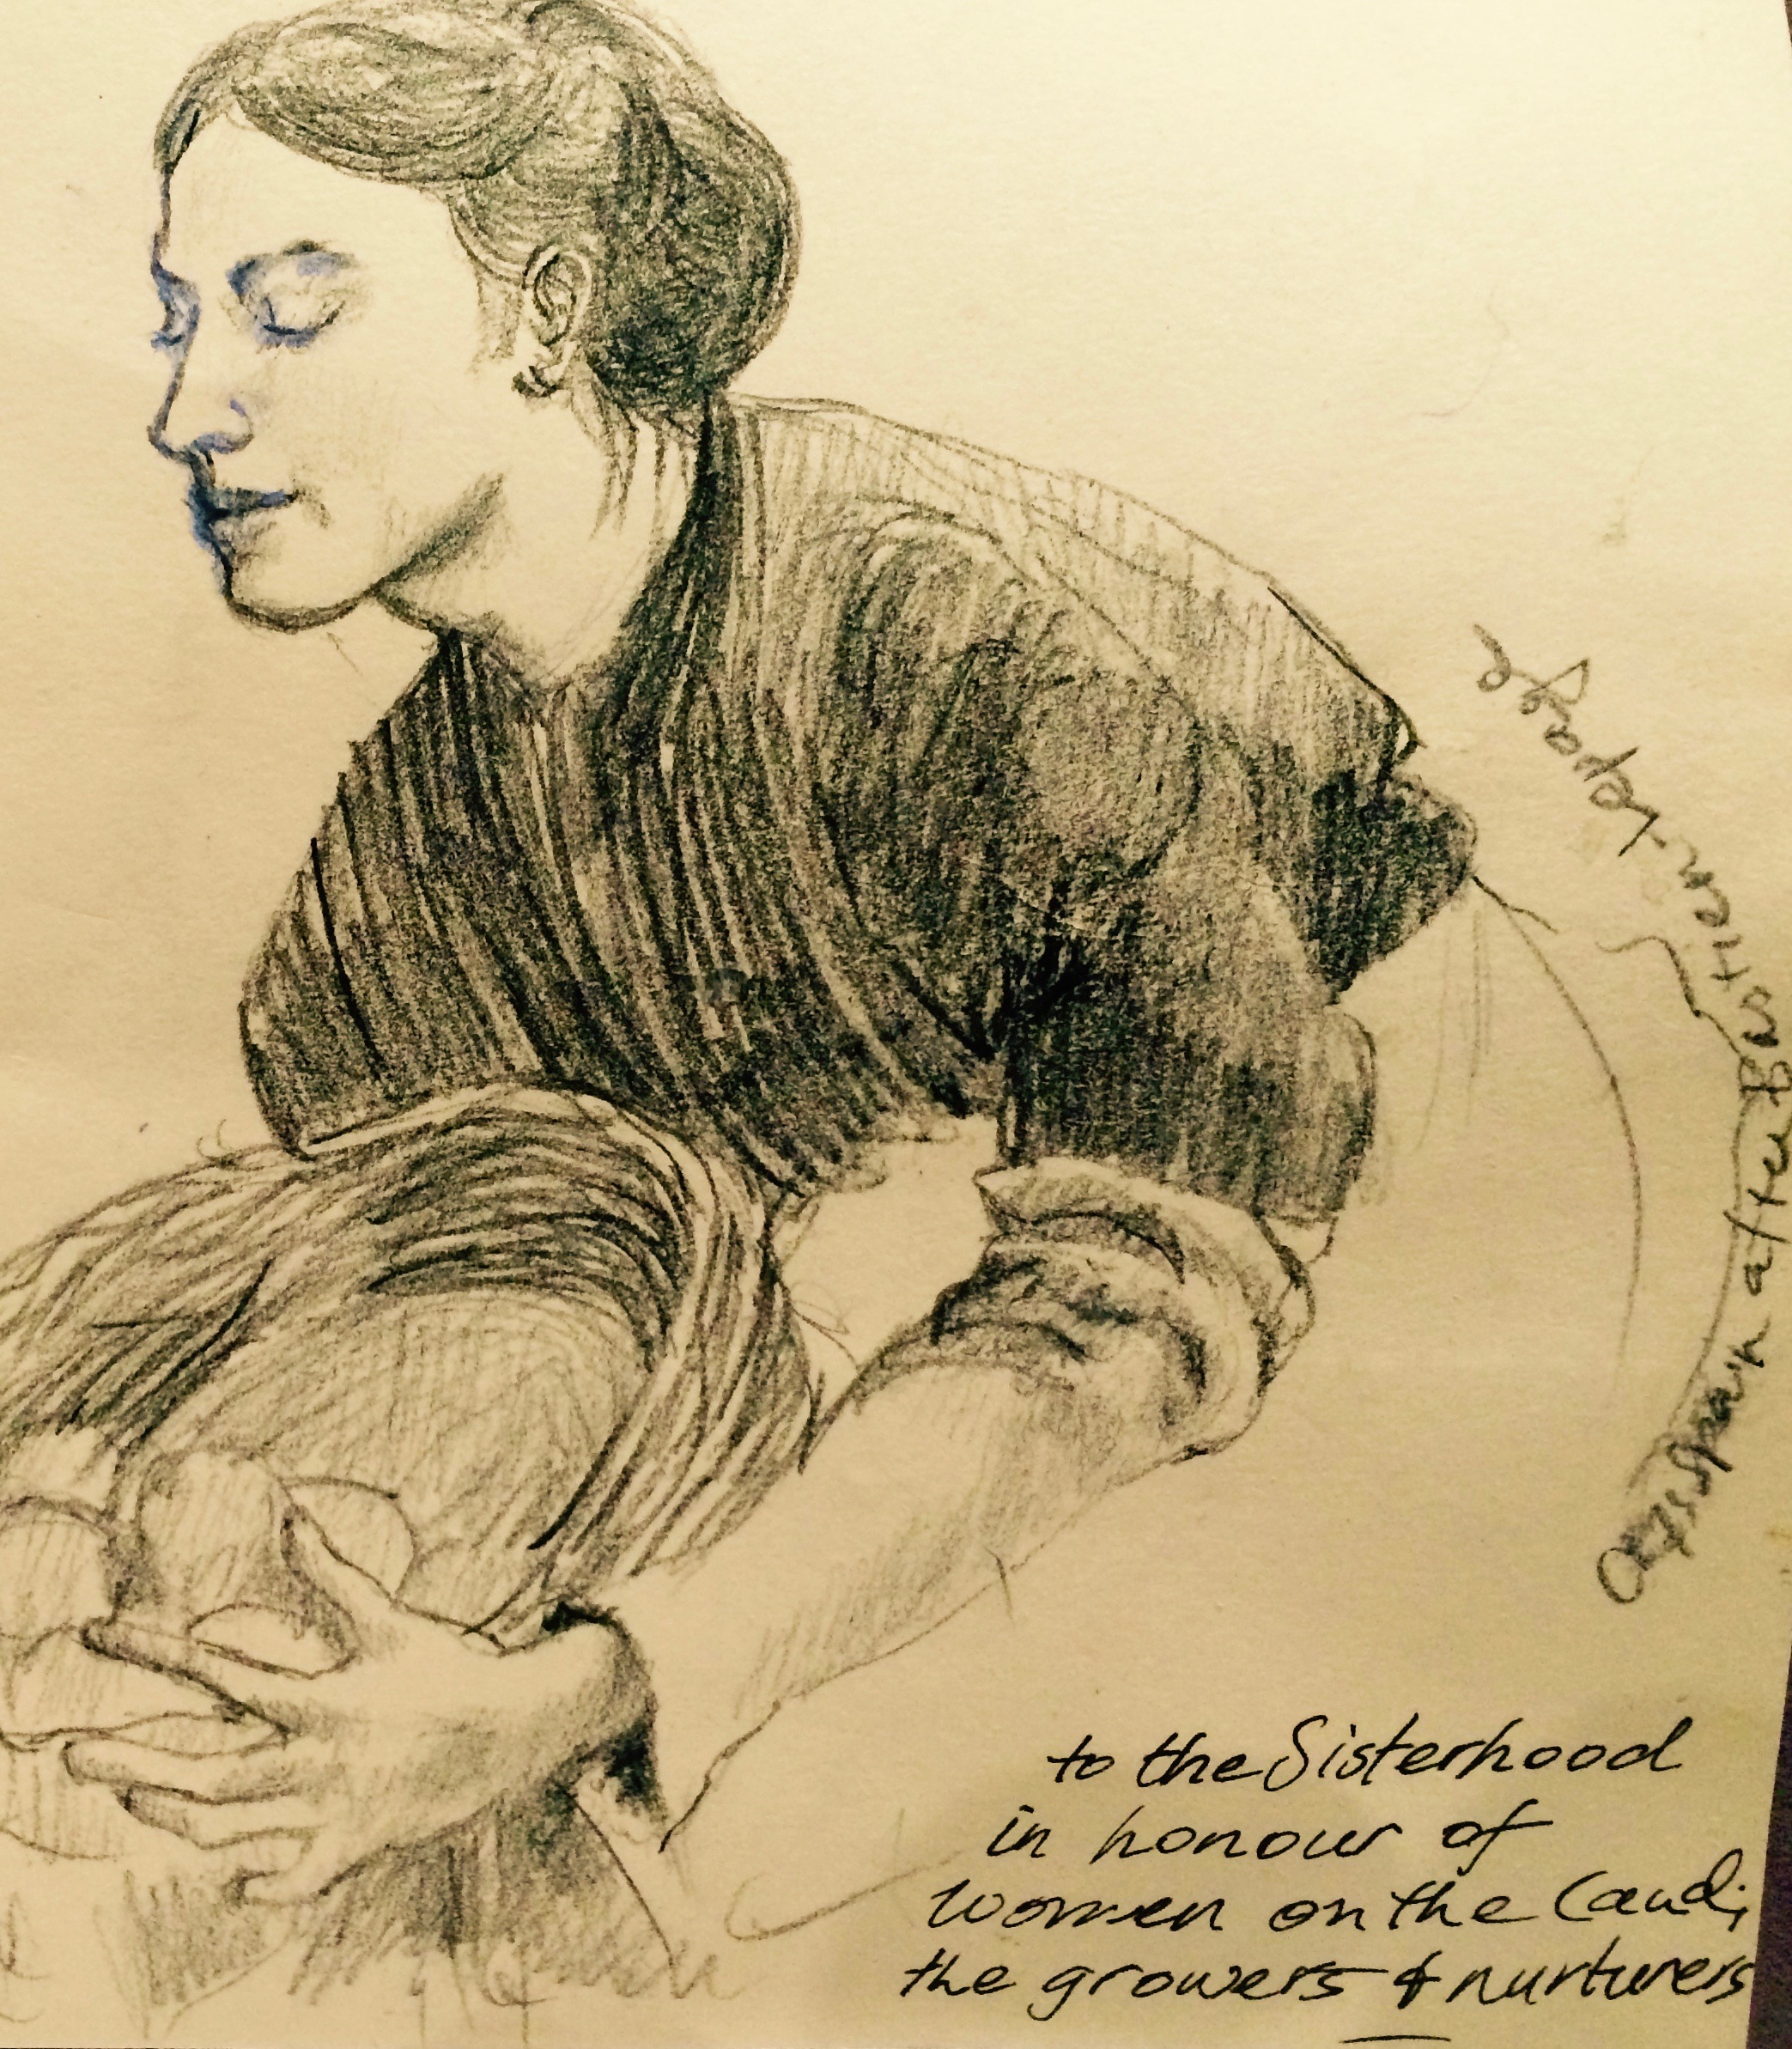 after Bastien-Lepage
to the Sisterhood
in honour of
women on the Land;
the growers & nurturers